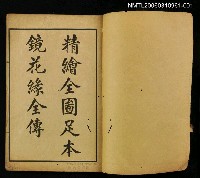 NMTL20080310961-001
精繪全圖足本
鏡花緣全傳